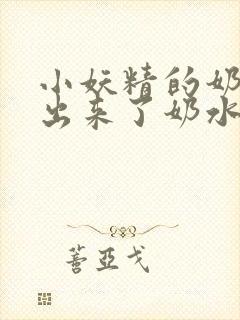 小妖精的奶
出来了奶水
蔷亚戈